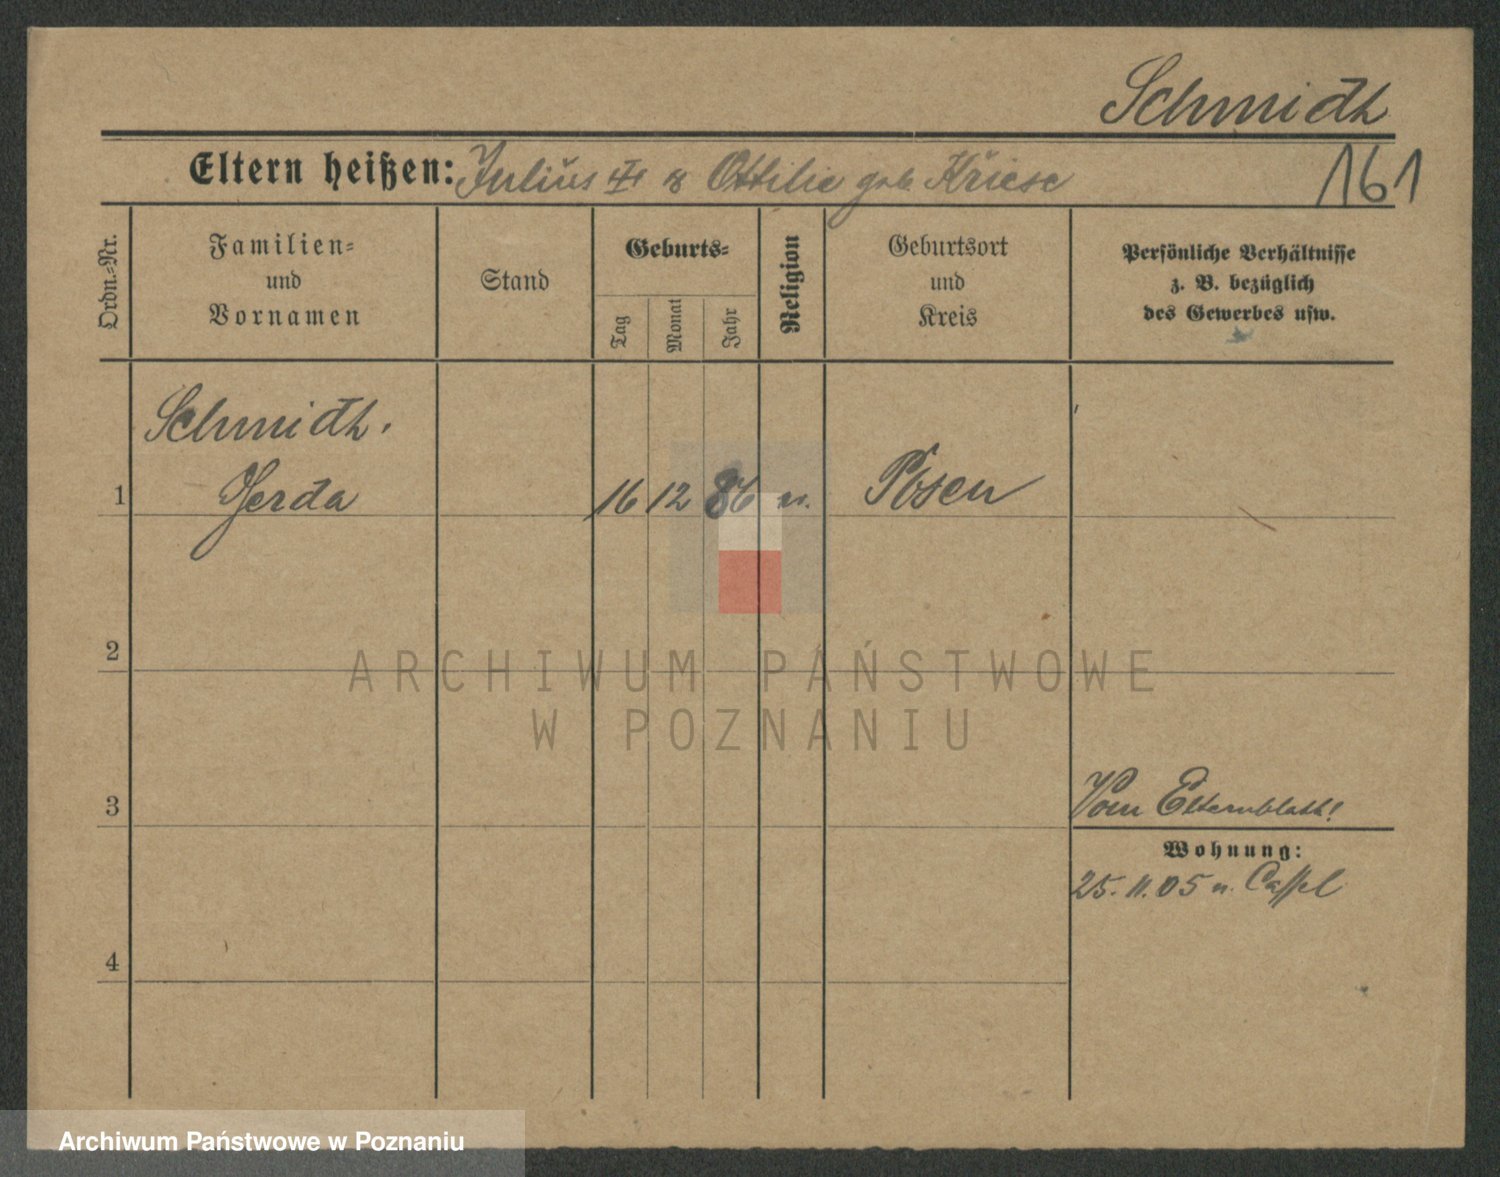 Schmidt
Eltern heißen: Julius III & Ottilie geb. Kriese
161
Ordn.-Nr.
Familien-
und
Vornamen
Stand
Geburts-
Tag
Monat
Jahr
Religion
Geburtsort
und
Kreis
Persönliche Verhältnisse
z. B. bezüglich
des Gewerbes usw.
Schmidt,
1 Gerda 16 12 86 Posen
2
ARCHIWUM PAŃSTWOWE
W POZNANIU
3
Vom Elternblatt!
Wohnung:
25.11.05 n. Cassel
4
Archiwum Państwowe w Poznaniu